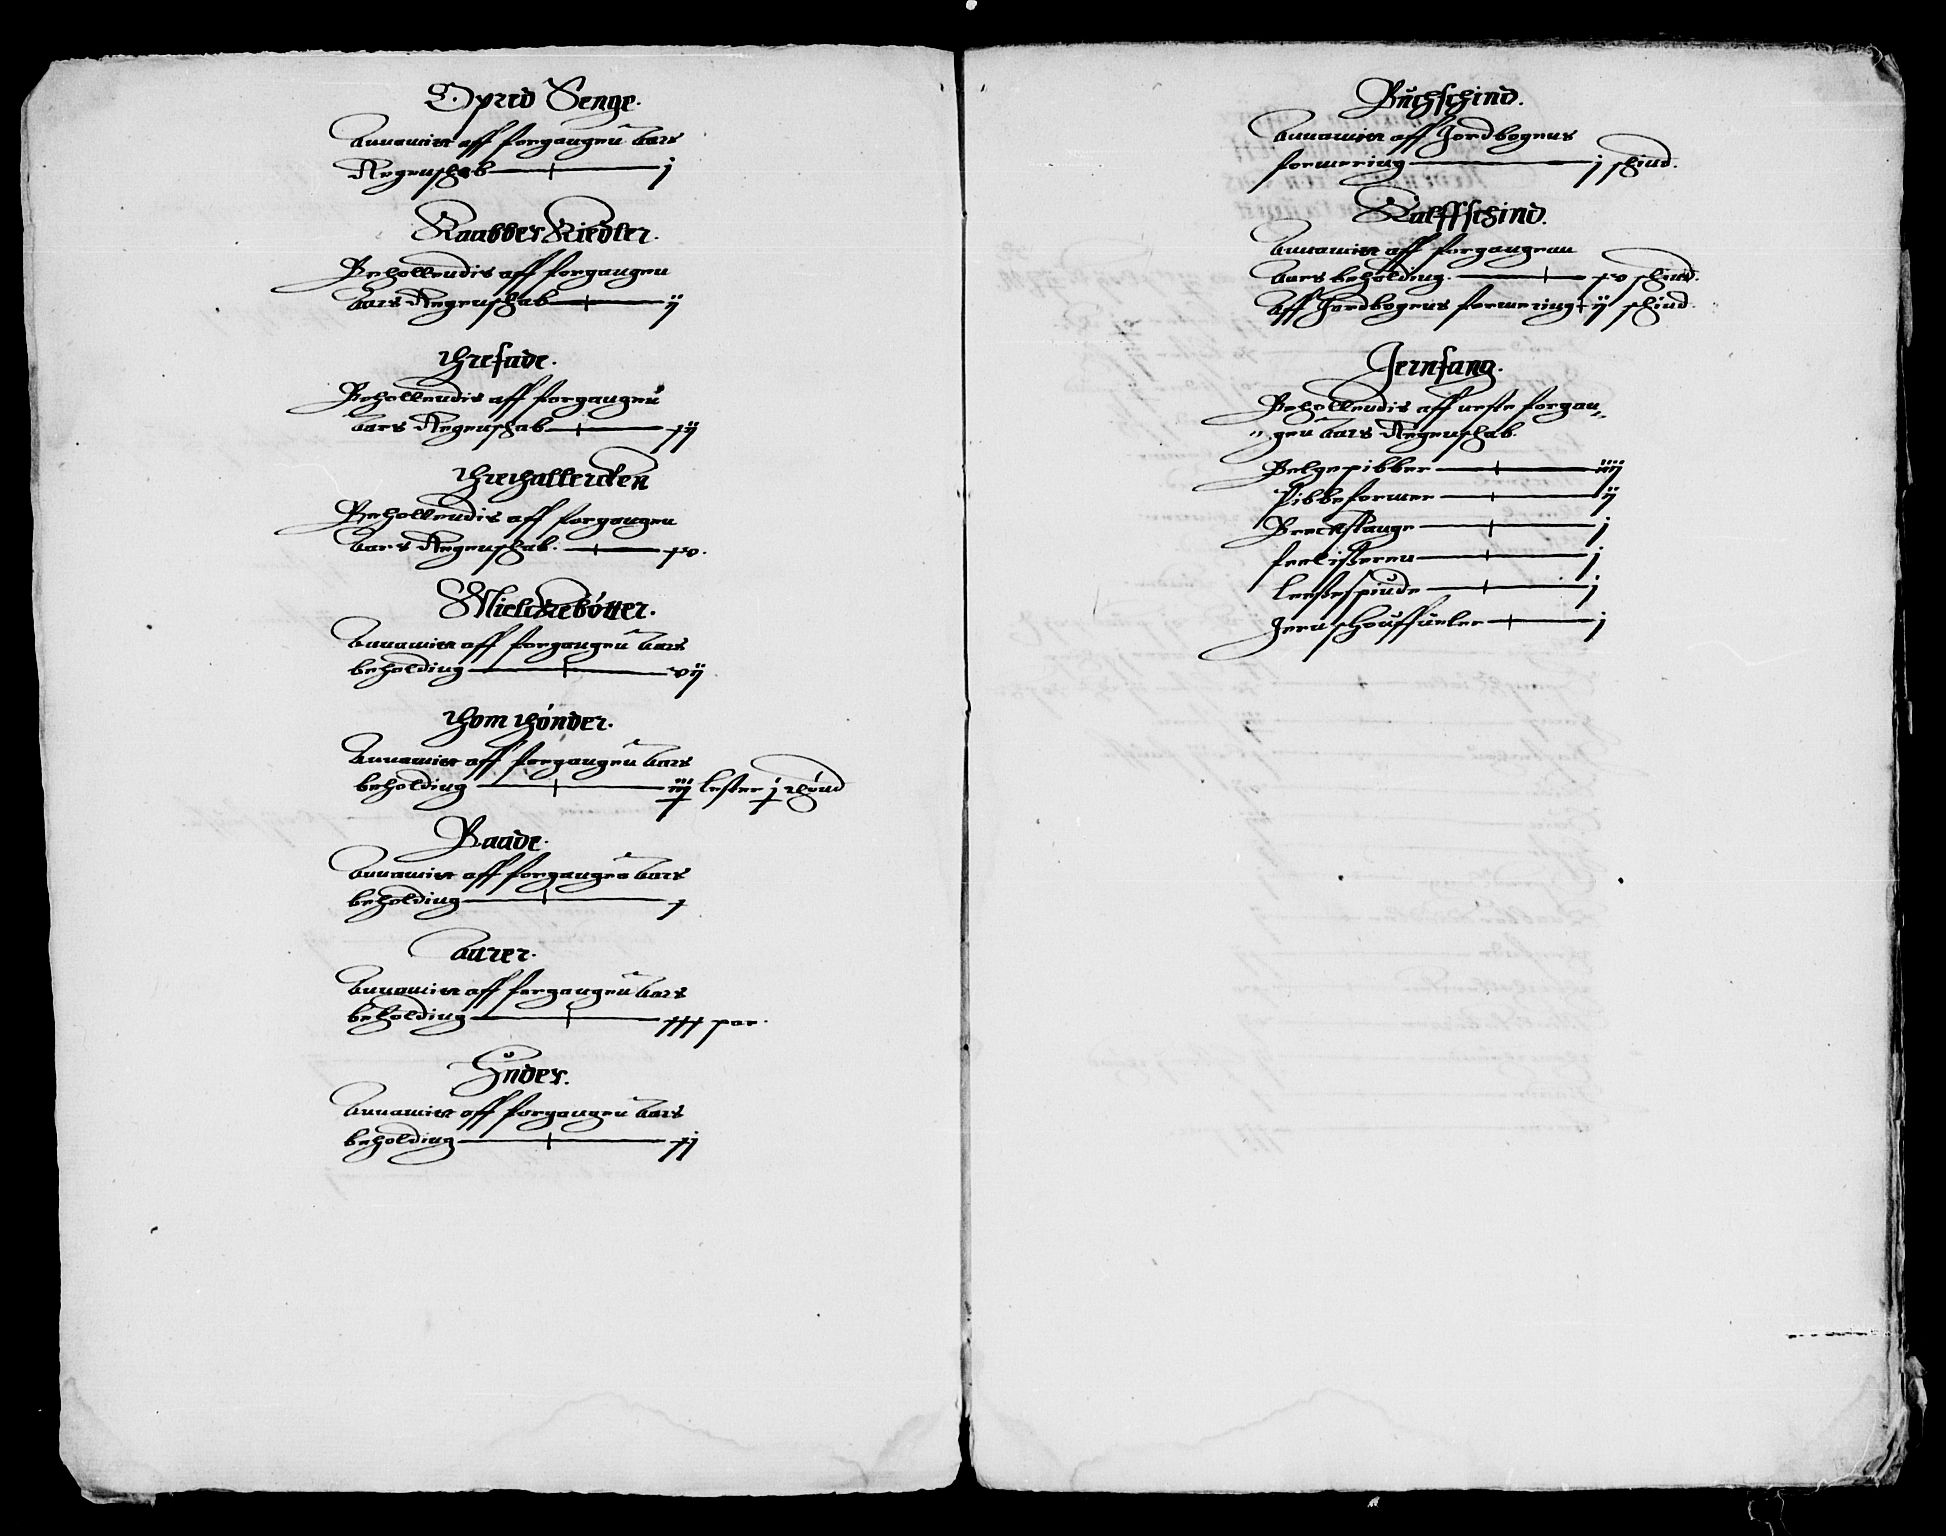 Opred Senge.
Annamitt aff forgangen Aars
Regenskab j
Kaabber Kiedler.
Beholdendis aff forgangen
Aars Regenskab ij
threfade.
Beholdendis aff forgangen
Aars Regenskab xij
threthallercken
Beholdendis aff forgangen
Aars Regenskab. xv.
Mielckebøtter.
Annamitt aff forgangen Aars
beholding vij
thom thønder.
Annamitt aff forgangen Aars
beholding iiij lester j thønd
Baade.
Annamitt aff forgangen Aars
beholding x
Aarer.
Annamitt aff forgangen Aars
beholding xxx par.
Ender.
Annamitt aff forgangen Aars
beholding xj
Buchschind.
Annamitt aff Jordbogens
formering j skind.
Kalffschind.
Annamitt aff forgangenn
Aars beholding. xv skind.
Aff Jordbogens formering ij skind.
Jernfang.
Beholdendis aff neste forgan-
gen Aars Regenskab.
Belgepibber iiij
Pibbeformer ij
Breckstange j
j
j
Jernskouffueler j